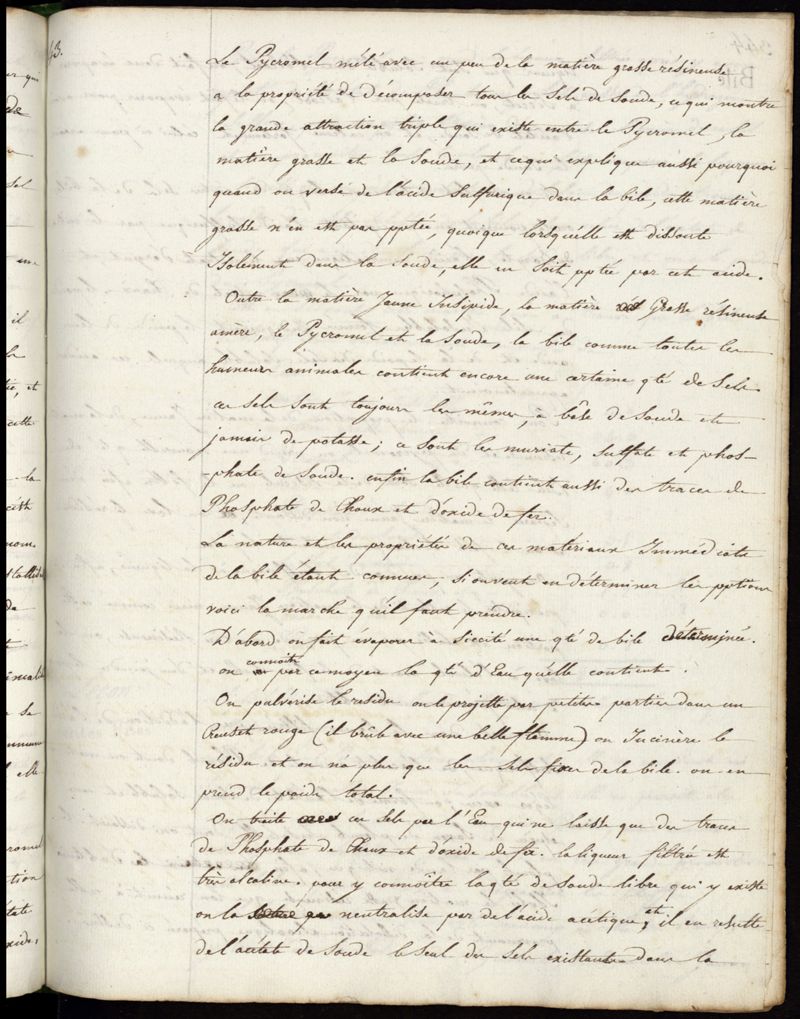 63.
Le Pycromel mêlé avec un peu de la matière grasse résineuse
a la propriété de décomposer tous les Sels de Soude, ce qui montre
la grande attraction triple qui existe entre le Pycromel, la
matière grasse et la Soude, et ce qui explique aussi pourquoi
quand on verse de l'acide Sulfurique dans la bile, cette matière
grasse n'en est pas pptée, quoique lorsqu'elle est dissoute
Isolément dans la Soude, elle en soit pptée par cet acide.
Outre la matière Jaune Insipide, la matière Grasse résineuse
amère, le Pycromel et la Soude, la bile comme toutes les
humeurs animales contient encore une certaine qté de Sels
ces Sels sont toujours les mêmes, à base de Soude et
jamais de potasse; ce sont les muriate, sulfate et phos-
-phate de Soude. enfin la bile contient aussi des traces de
Phosphate de Chaux et d'oxide de fer.
La nature et les propriétés de ces matériaux Immédiats
de la bile étant connues, si on veut en déterminer les pptions
voici la marche qu'il faut prendre.
D'abord on fait évaporer à Siccité une qté de bile déterminée.
on connoit par ce moyen la qté d'Eau qu'elle contient.
On pulvérise le résidu on le projette par petites parties dans un
Creuset rouge (il brûle avec une belle flamme) on Incinère le
résidu et on n'a plus que les Sels fixes de la bile. on en
prend le poids total.
On traite ces Sels par l'Eau qui ne laisse que des traces
de Phosphate de Chaux et d'oxide de fer. la liqueur filtrée est
très alcaline. pour y connoître la qté de Soude libre qui y existe
on la neutralise par de l'acide acétique, et il en resulte
de l'acétate de Soude le Seul des Sels existants dans la